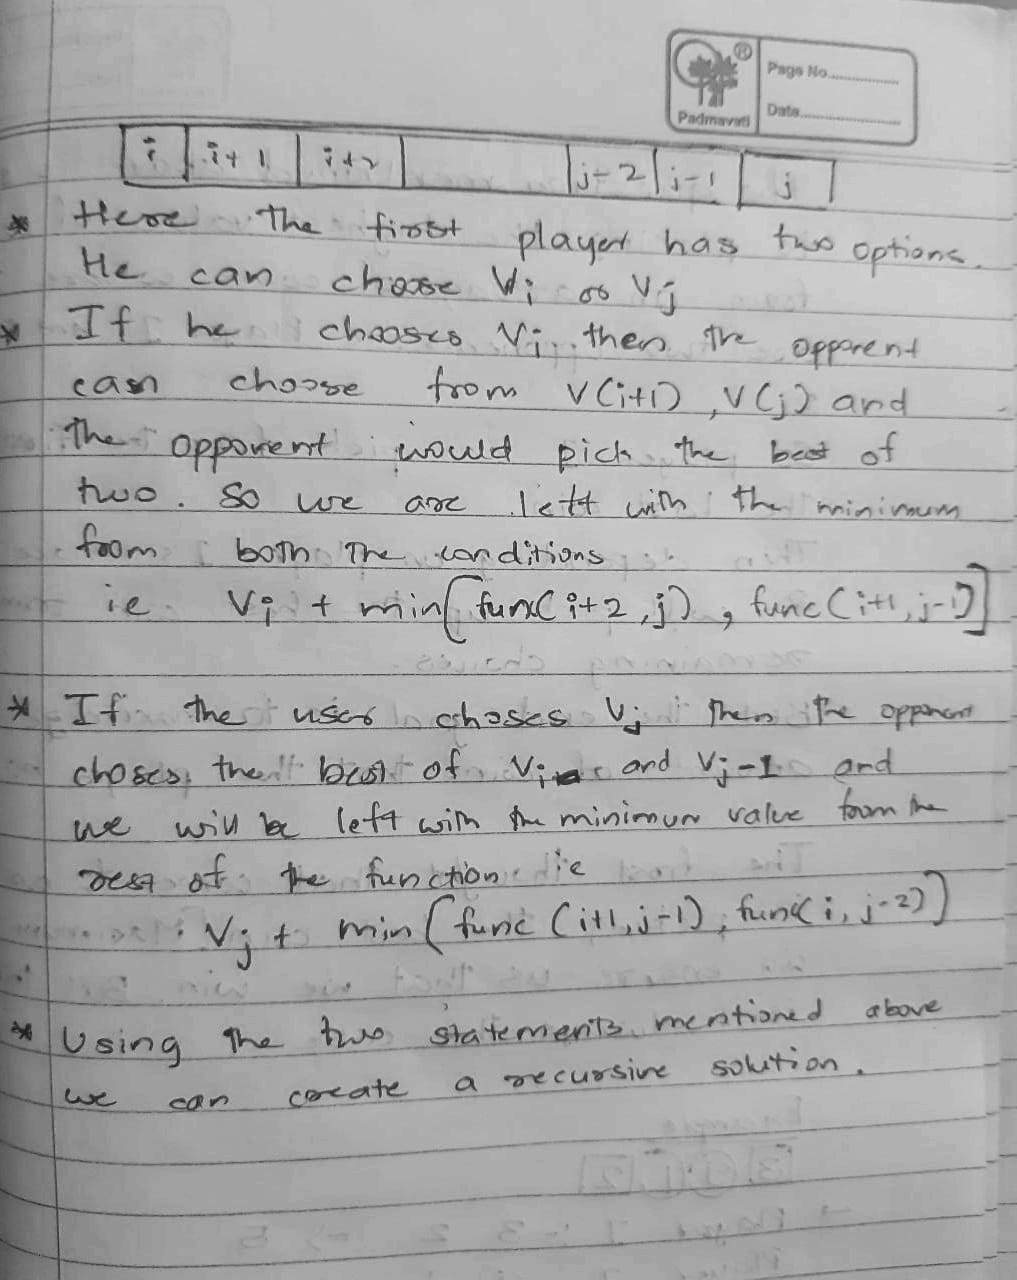 Page No.
Date
Padmavati
i i+1 i+2 j-2 j-1 j
* Here the first player has two options.
He can choose Vi or Vj
* If he chooses Vi then the opponent
can choose from V(i+1), V(j) and
the opponent would pick the best of
two. So we are left with the minimum
from both the conditions
ie Vi + min[func(i+2,j), func(i+1,j-1)]
* If the user choses Vj then the opponent
choses the best of Vi and Vj-1 and
we will be left with the minimum value from the
rest of the function ie
Vj + min(func(i+1,j-1), func(i, j-2))
* Using the two statements mentioned above
we can create a recursive solution.